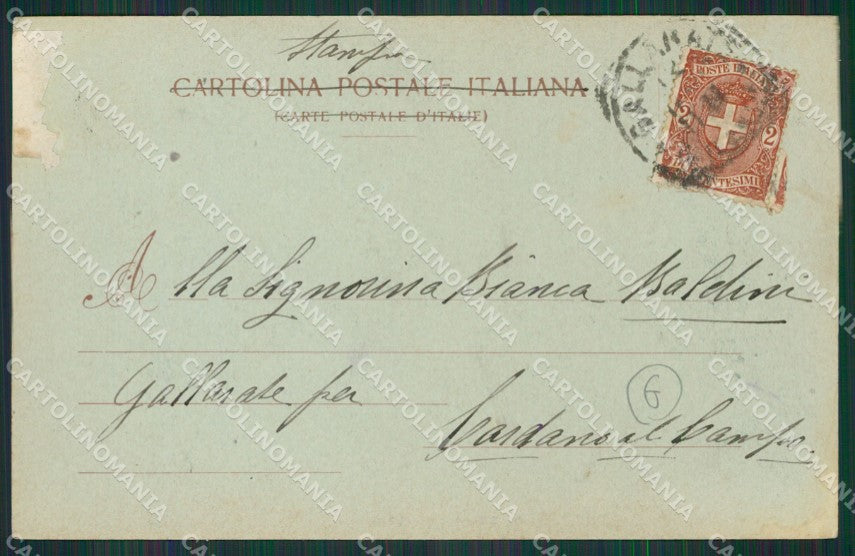 Stampe
CARTOLINA POSTALE ITALIANA
(CARTE POSTALE D'ITALIE)
GALLARATE
POSTE ITALIANE
2 2
CENTESIMI
Alla Signorina Bianca Baldini
Gallarate per
G
Cardano al Campo
CARTOLINOMANIA